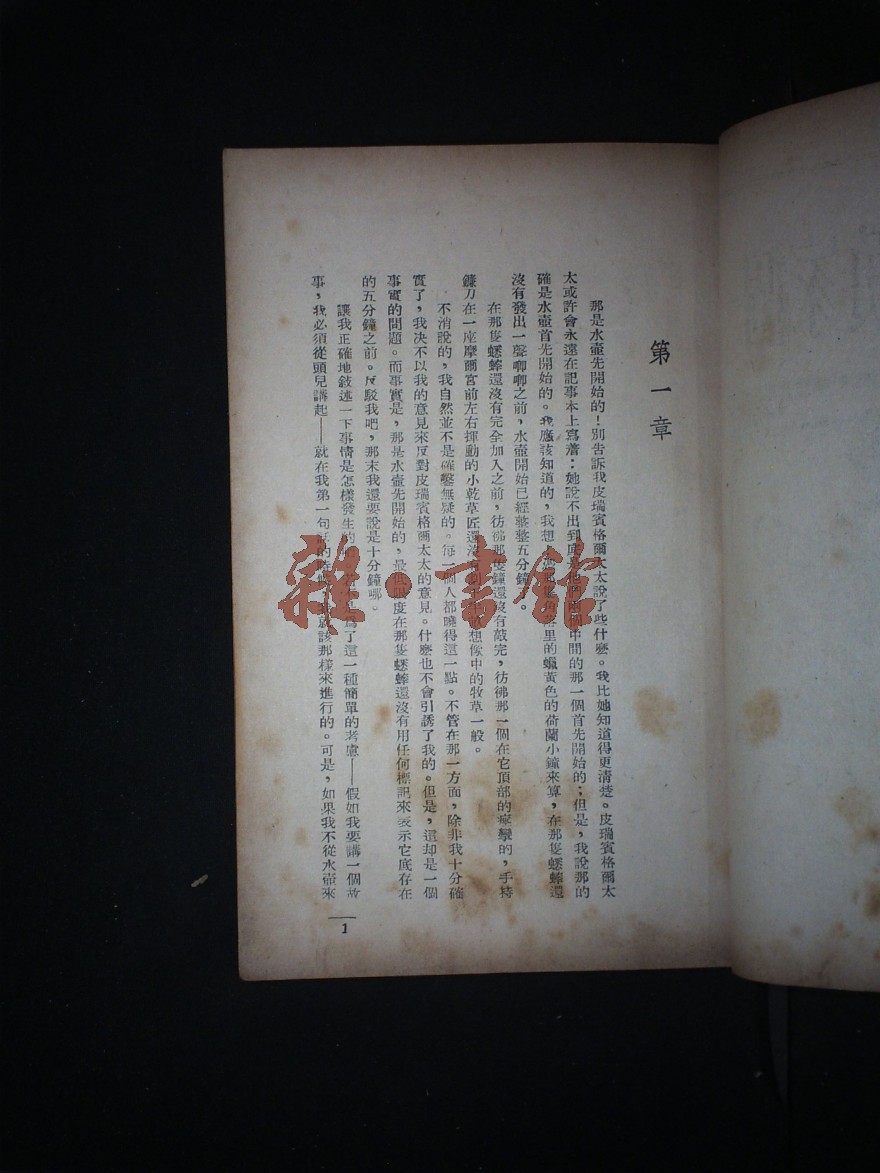 第一章
那是水壺先開始的！別告訴我皮瑞賓格爾太太說了些什麼。我比她知道得更清楚。皮瑞賓格爾太
太或許會永遠在記事本上寫着：她說不出到底是他們兩個中間的那一個首先開始的；但是，我說那的
確是水壺首先開始的。我應該知道的，我想！里的蠟黃色的荷蘭小鐘來算，在那隻蟋蟀還
沒有發出一聲唧唧之前，水壺開始已經整整五分鐘了。
在那隻蟋蟀還沒有完全加入之前，彷彿那隻鐘還沒有敲完，彷彿那一個在它頂部的痙攣的，手持
鐮刀在一座摩爾宮前左右揮動的小乾草匠還沒有想像中的牧草一般。
不消說的，我自然並不是確鑿無疑的。每一個人都曉得這一點。不管在那一方面，除非我十分確
實了，我決不以我的意見來反對皮瑞賓格爾太太的意見。什麼也不會引誘了我的。但是，這却是一個
事實的問題。而事實是，那是水壺先開始的，最低限度在那隻蟋蟀還沒有用任何標記來表示它底存在
的五分鐘之前。反駁我吧，那末我還要說是十分鐘哪。
讓我正確地敍述一下事情是怎樣發生的爲了這一種簡單的考慮——假如我要講一個故
事，我必須從頭兒講起——就在我第一句話的時候我就該那樣來進行的。可是，如果我不從水壺來
1
雜·書館